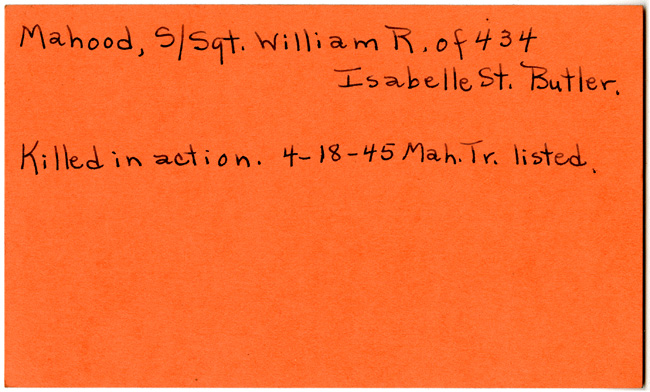 Mahood, S/Sgt. William R. of 434
Isabelle St. Butler.
Killed in action. 4-18-45 Mah. Tr. listed.